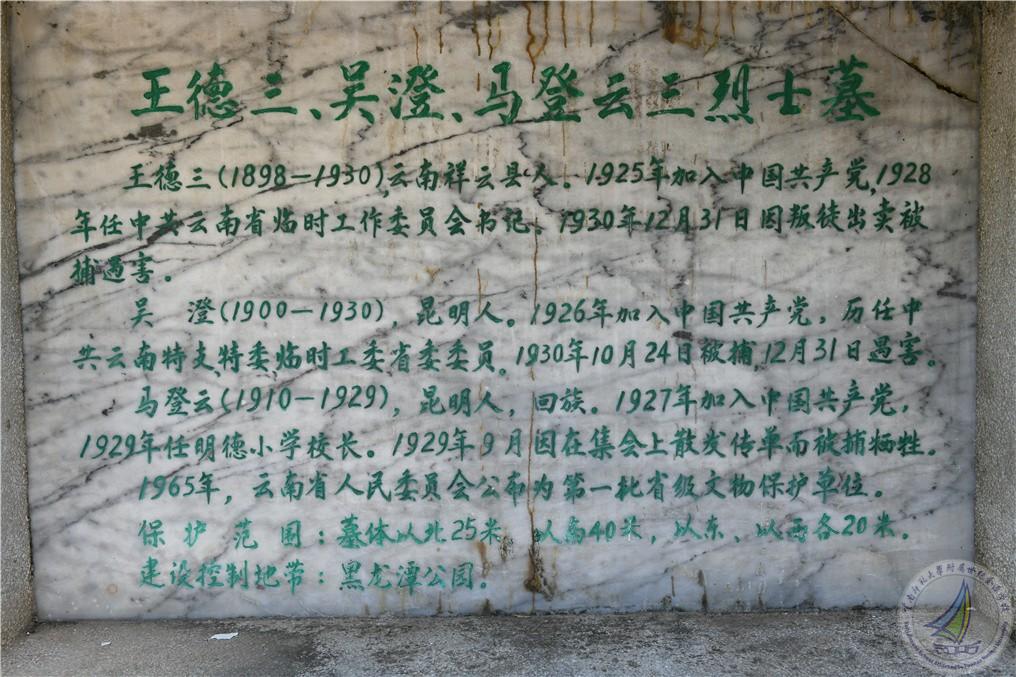 王德三、吴澄、马登云三烈士墓
王德三(1898—1930),云南祥云县人。1925年加入中国共产党,1928
年任中共云南省临时工作委员会书记。1930年12月31日因叛徒出卖被
捕遇害。
吴 澄(1900—1930)，昆明人。1926年加入中国共产党，历任中
共云南特支、特委、临时工委省委委员，1930年10月24日被捕,12月31日遇害。
马登云(1910—1929)，昆明人，回族。1927年加入中国共产党，
1929年任明德小学校长。1929年9月因在集会上散发传单而被捕牺牲。
1965年，云南省人民委员会公布为第一批省级文物保护单位。
保护范围：墓体以北25米，以南40米，以东、以西各20米。
建设控制地带：黑龙潭公园。